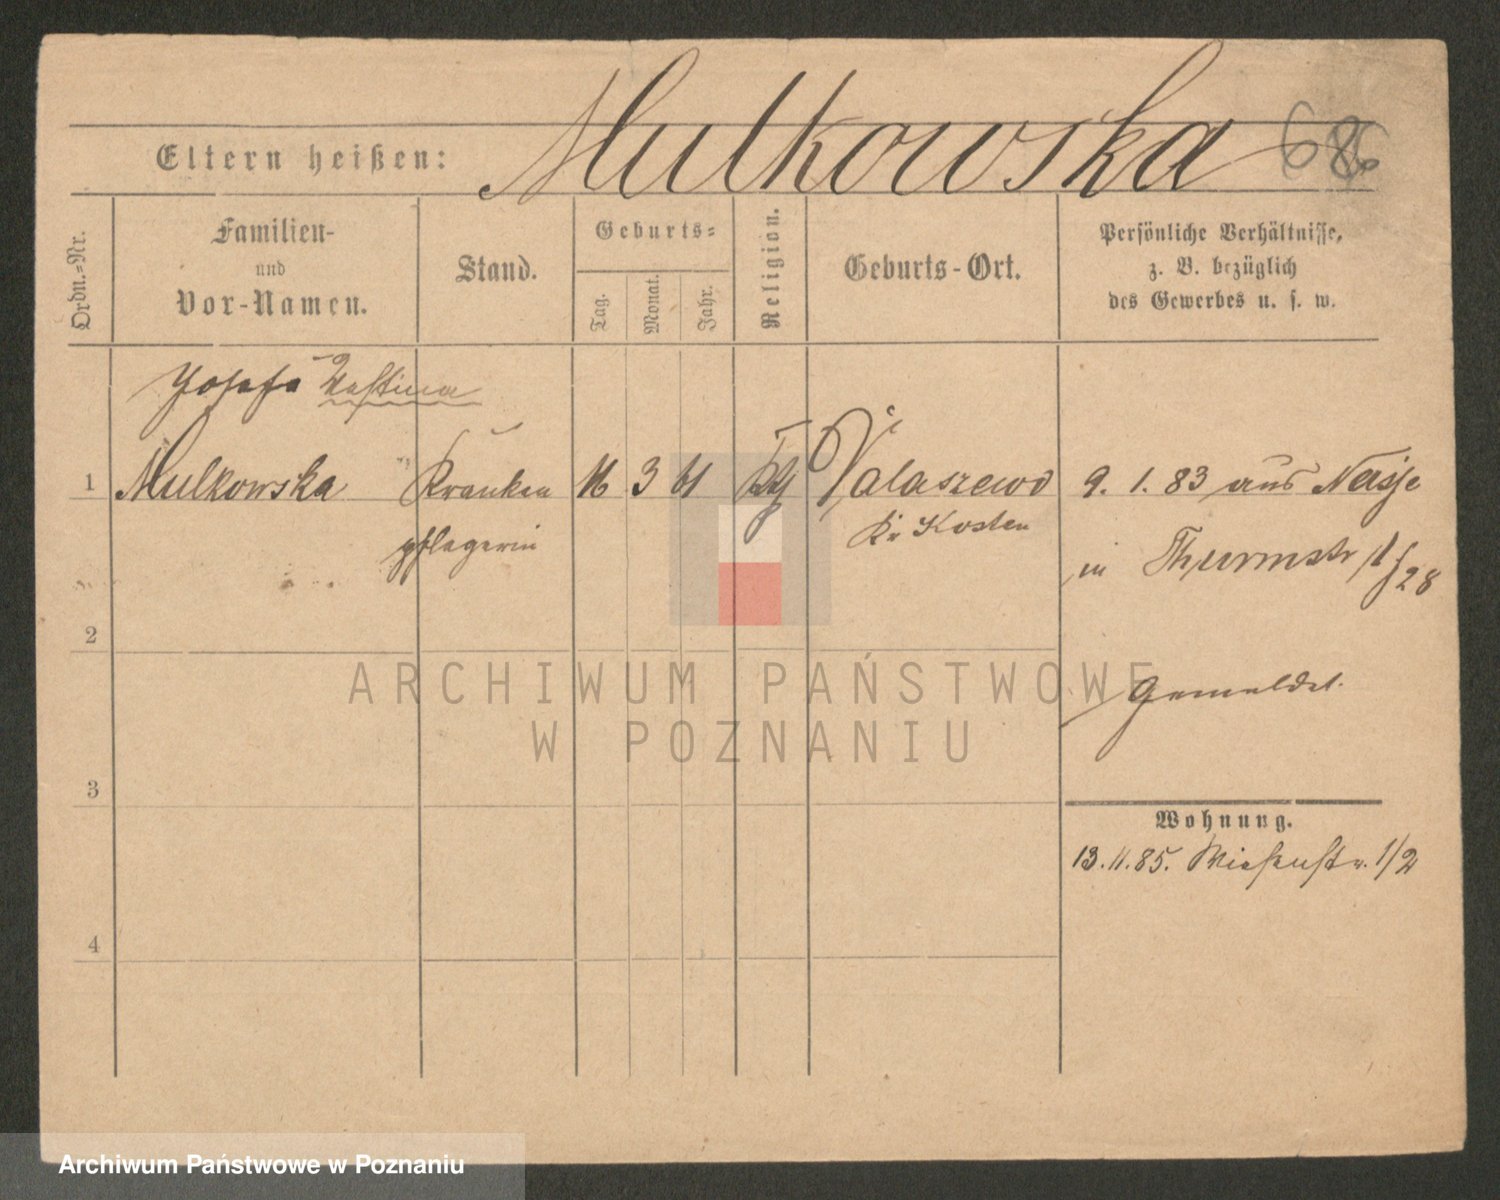 Mulkowska 686
Eltern heißen:
Ordn.-Nr.
Familien-
und
Vor-Namen.
Stand.
Geburts-
Tag.
Monat.
Jahr.
Religion.
Geburts-Ort.
Persönliche Verhältnisse,
z. B. bezüglich
des Gewerbes u. s. w.
Josefa
1 Mulkowska Kranken 16 3 61 kth Walaszewo 9. 1. 83 aus Neisse
pflegerin Kr Kosten
in Thurmstr 1/28
2
Gemeldet.
3
Wohnung.
13.11.85. Wiesenstr. 1/2
4
ARCHIWUM PAŃSTWOWE
W POZNANIU
Archiwum Państwowe w Poznaniu